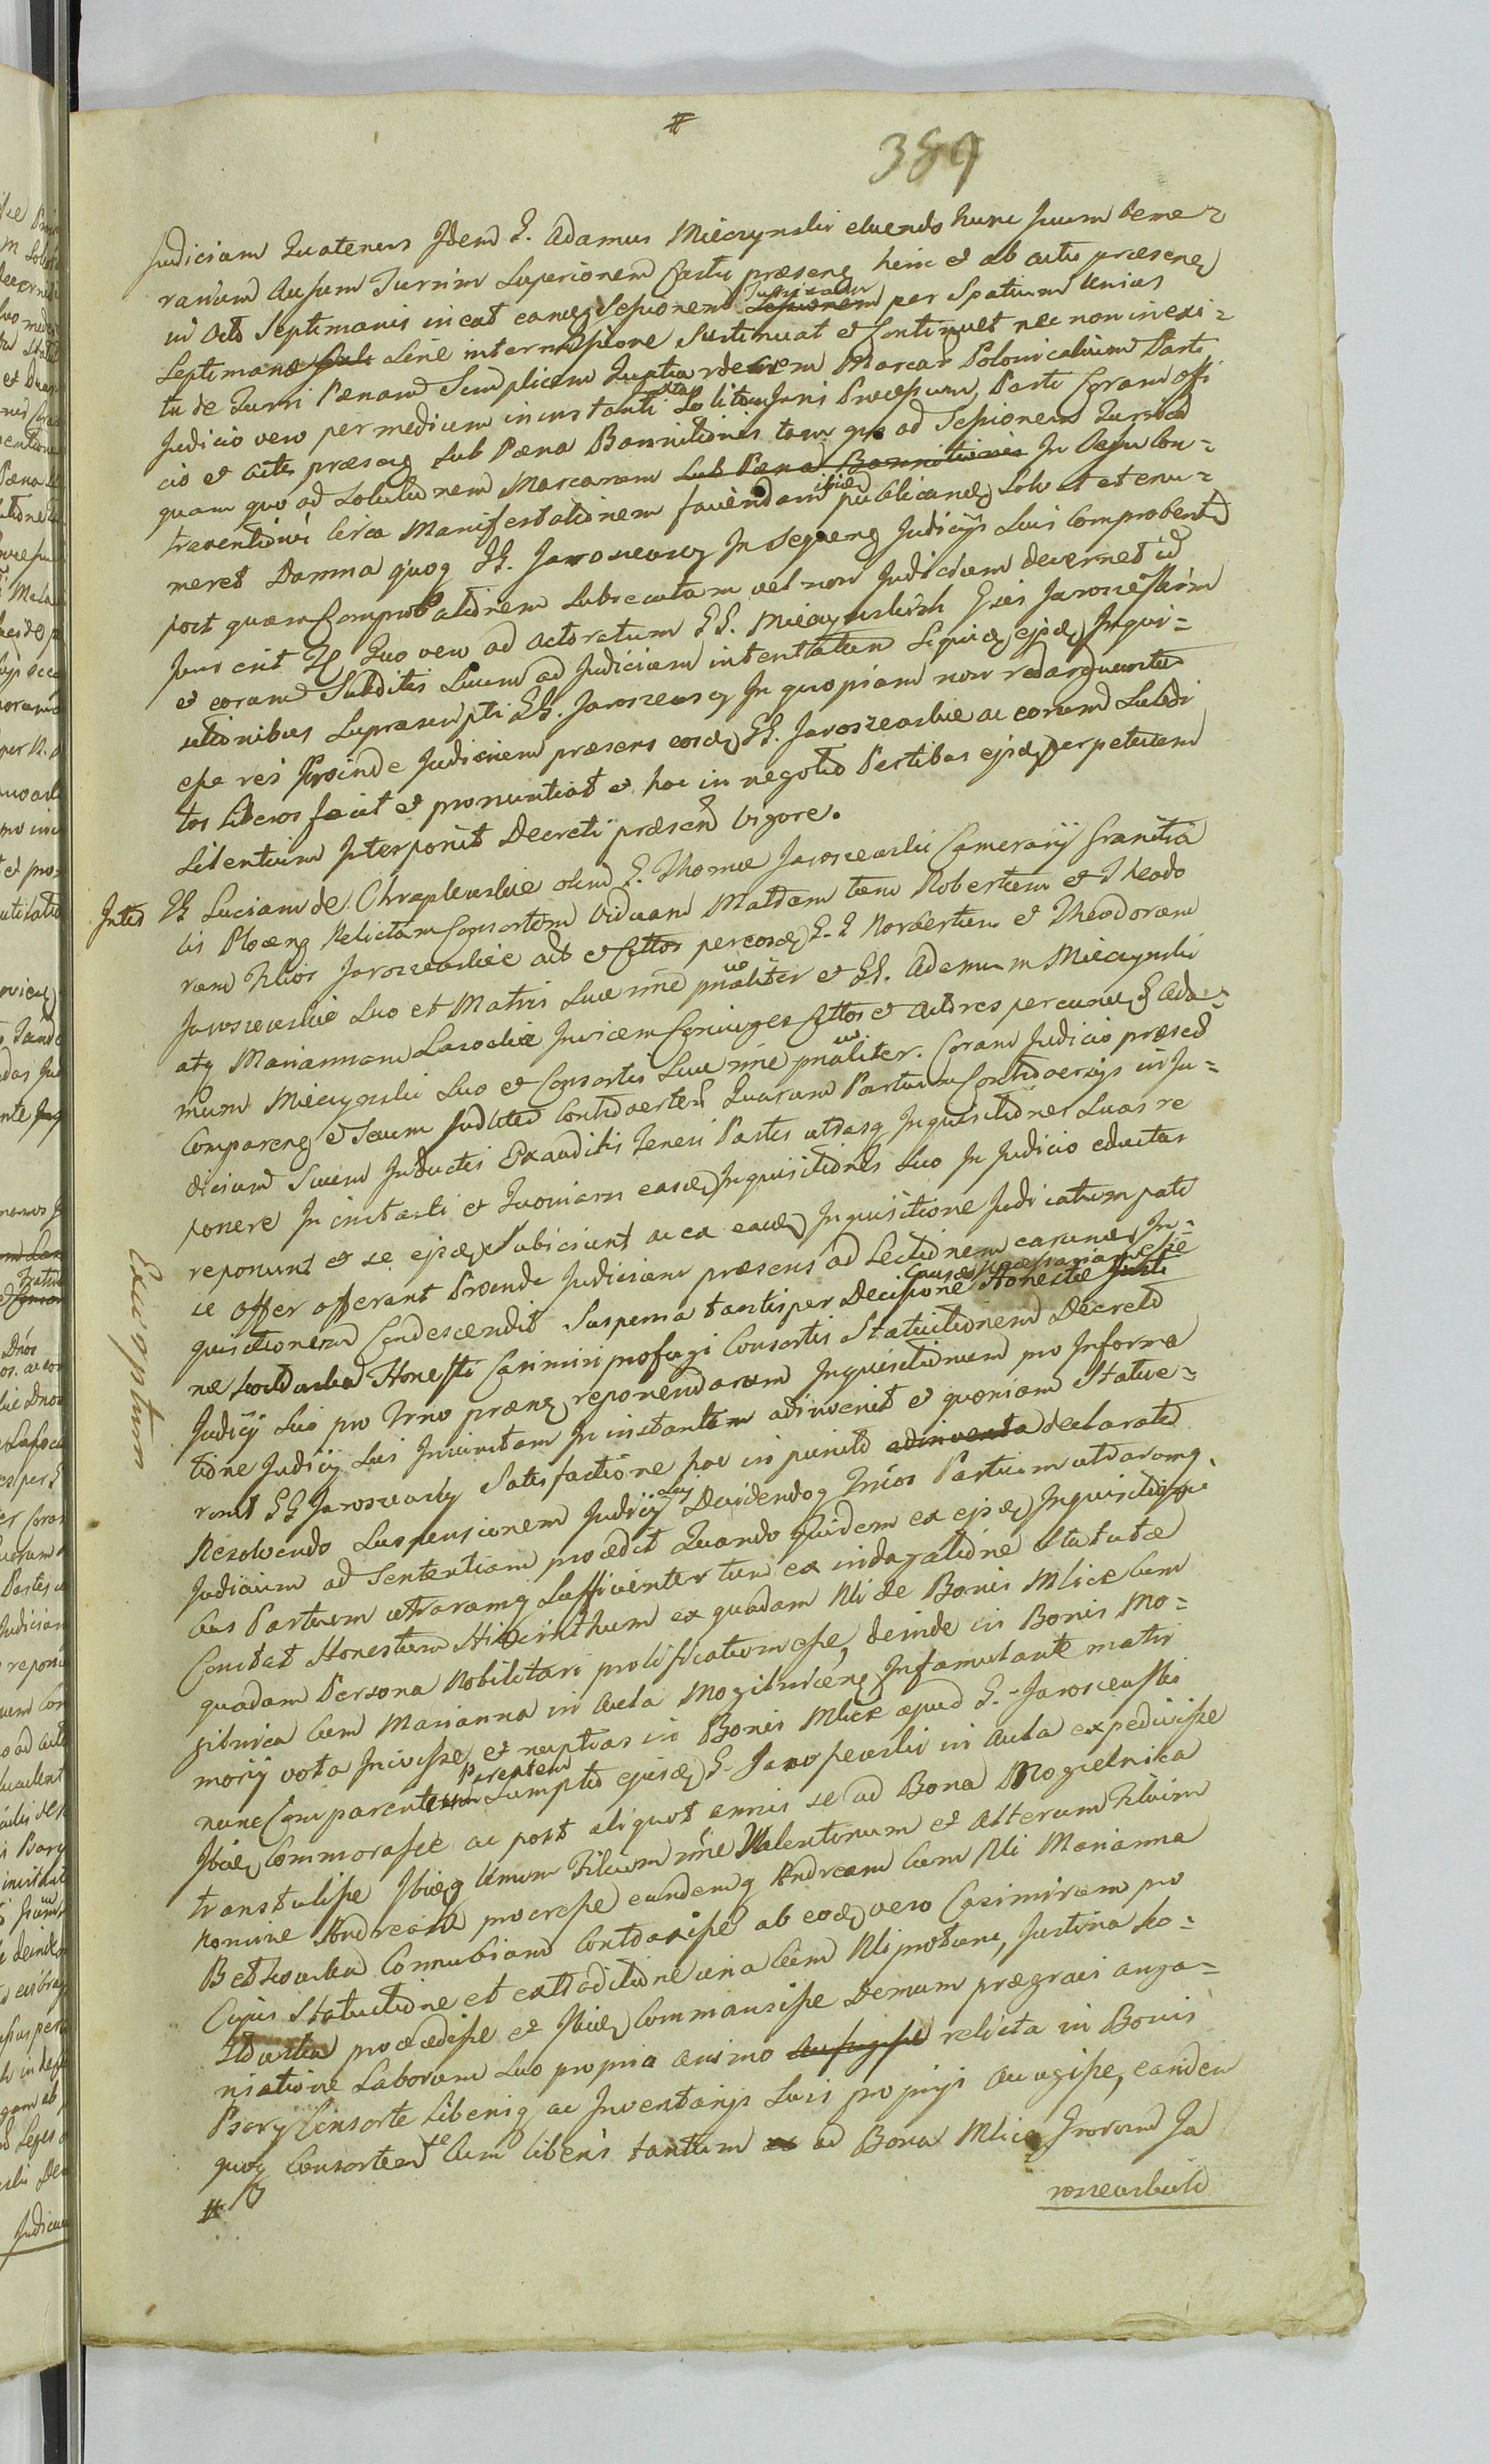 #
389
Judicium Quatenus Idem G. Adamus Mieczynski eluendo hunc suum teme-
rarium Ausum Turrim Superiorem Castri præsenq hinc et ab actu præsenq
in octo Septimanis ineat eamq Sessionem Sessionem Turris actu per Spatium Unius
Septimanæ Sub Sine intermissione Sustineat et Continuet nec non in exi-
tu de Turri Pœnam Simplicem Quatuordecem Marcar Polonicalium Parti
Judicio vero per medium in instanti Juxta Solitum Juris Processum, Parti Coram offi
cio et actis præsenq Sub Pœna Bannitionis tam quo ad Sessionem Turris
quam quo ad Solutionem Marcarum Sub Pœna Bannitionis In Casu Con-
traventionis Circa Manifestationem faciendam ibiq publicanq Solvat et enu-
meret Damna quoq GG. Jaroszewscy In Sequenq Judicijs Suis Comprobent
post quam Comprobationem Subsecutam vel non Judicium decernet id
Juris erit Quo vero ad Actoratum GG. Mieczynskich Gsis Jaroszewskim
et eorum Subditis Suum ad Judicium intentatum Siquidem ejsdq Inqui-
sitionibus Suprascripti GG. Jaroszewscy In quopiam non redarguuntur
esse rei Proinde Judicium præsens eosdq GG. Jaroszewskie ac eorum Subdi
tos Liberos facit et pronuntiat et hoc in negotio Partibus ejsdq perpetuum
Silentium Interponit Decreti præsen vigore.
Inter G Lucjam de Chraplewskie olim G. Thomæ Jaroszewski Camerarij Granitia
lis Plocenq Relictam Consortem Viduam Matrem tum Robertum et Theodo
rum Filios Jaroszewskie act et Cittos per eosdq G.G Norbertum et Theodorum
Jaroszewskie Suo et Matris Suæ nne pnaliter et GG. Adamum Mieczynski
atq Mariannam Lasockie Invicem Coniuges Cittos et Actores per eumdq G Ada-
mum Mieczynski Suo et Consortis Suæ nne pnaliter. Coram Judicio præsen
Comparenq et Secum Juditer Controverten Quarum Partium Controversijs in Ju-
dicium Suum Inductis Exauditis Teneri Partes utrasq Inquisitiones Suas re
ponere In instanti et Quoniam easdq Inquisitiones Suo In Judicio eductas
reponunt et se ejsdq Subiciunt ac ex eaudq Inquisitione Judicatum pati
se offer offerant Proinde Judicium præsens ad Lectionem earumdq In-
quisitionum Condescendit Suspensa tantisper Decisione Causæ necessariam esse Honestæ Justi
næ Honesti Casimiri profugi Consortis Statuitionem Decreto
Judicij Suo pro Trno prænq reponendarum Inquisitionum pro Informa
tione Judicij Sui Iniunctam In instantem adinvenit et quoniam Statue-
runt GG Jaroszewscy Satisfactione hac in puncto adinventa declarata
Resolvendo Suspensionem Judicij Suij Decidendoq Trnos Partium utrarumq
Judicium ad Sententiam procedit Quando quidem ex ejsdq Inquisitioni
bus Partium utrarumq Sufficienter tum ex indagatione Statutæ
Constat Honestum Hiacinthum ex quadam Nli de Bonis Mlice Cum
quadam Persona Nobilitari prolificatum esse, deinde in Bonis Mo-
gilnica Cum Marianna in Aula Mogilnicenq Infamulante matri
monij vota Inivisse, et nuptias in Bonis Mlice apud G. Jaroszewski
nunc Comparentem Parentem Sumptu ejusdq G. Jaroszewski in Aula expedivisse
Ibidq Commorasse ac post aliquot annis se ad Bona Mogielnica
transtulisse Ibiq Unum Filium nne Valentinum et Alterum Filium
nomine Andream procresse eundemq Andream Cum Nli Marianna
Connubium Contraxisse ab eodq vero Casimirum pro
Cujus Statuitione et extraditione una Cum Nli protunc, Justina Ko-
processisse et Ibidq Commansisse Demum prægravi anga-
niatione Laborum Suo propria animo Aufugisse relicta in Bonis
Psary Consorte Liberisq ac Inventarijs Suis propijs Aufugisse, eandem
quoq Consortem Cum Liberis tantum se ad Bona Mlice Gnrorum Ja
#
roszewskich
Exceptum